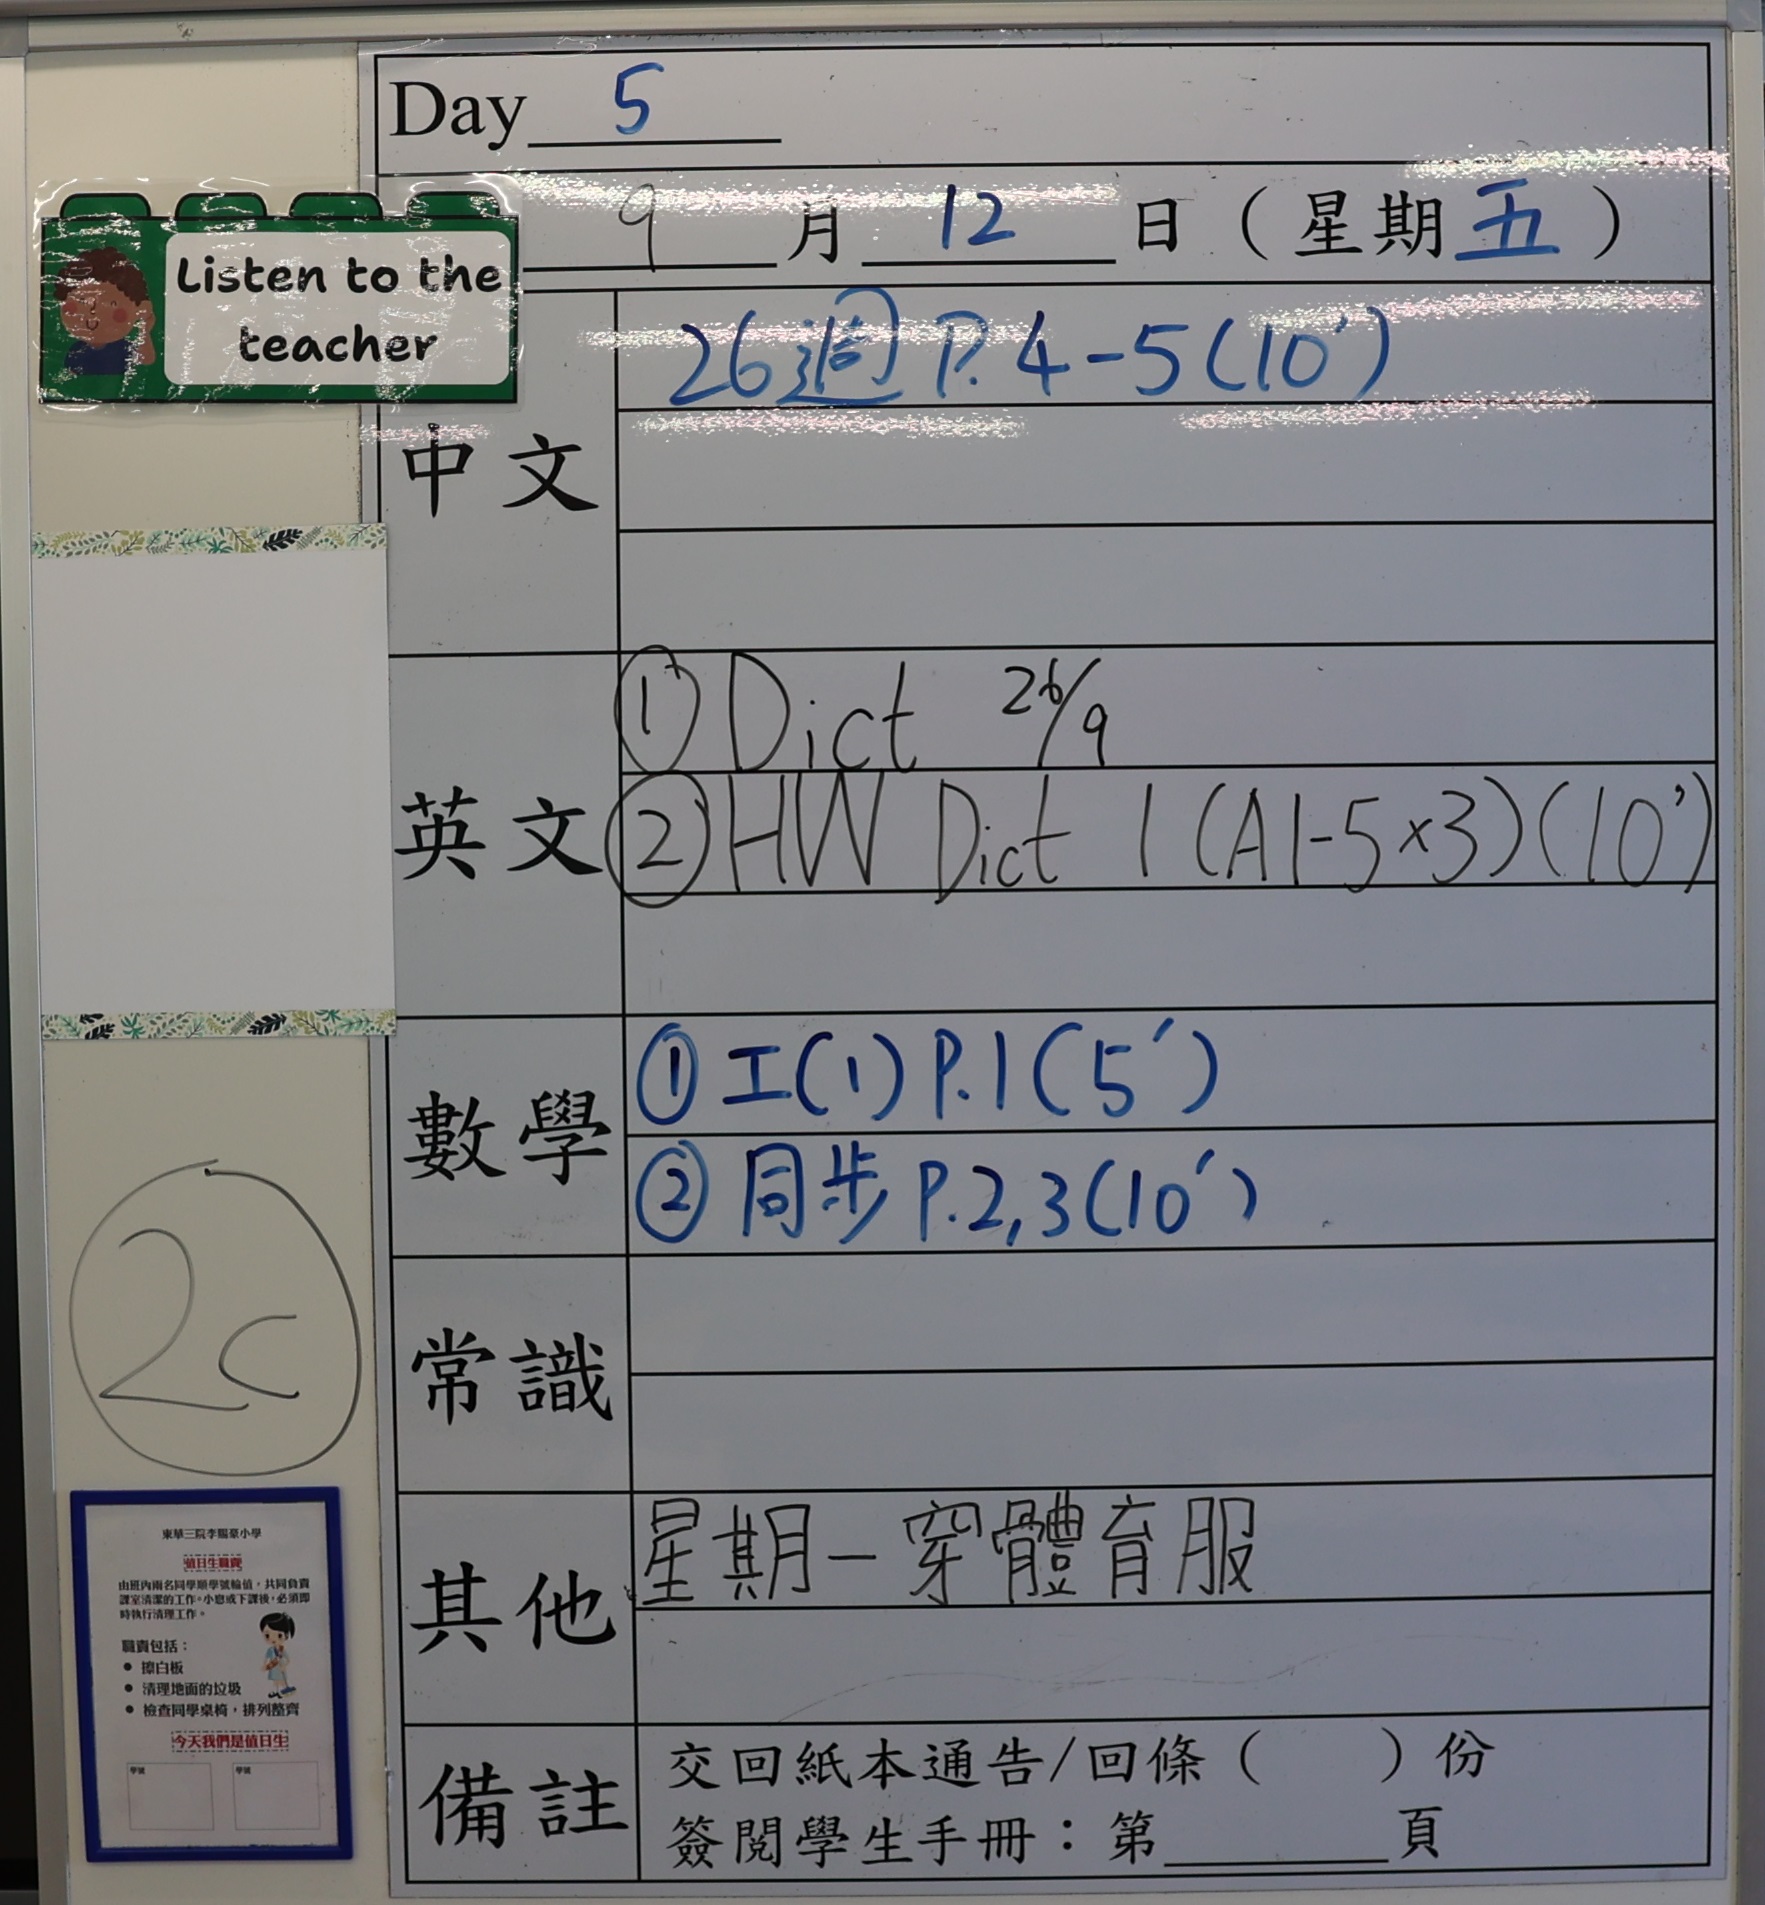 Day 5
9 月 12 日 ( 星期 五 )
Listen to the
teacher
中文
26週 P.4-5(10')
英文
① Dict 26/9
② HW Dict 1 (A1-5×3)(10')
數學
① 工(1) P.1(5')
② 同步 P.2,3(10')
2C
常識
其他
星期一穿體育服
備註
交回紙本通告/回條 ( ) 份
簽閱學生手冊：第 頁
東華三院李賜豪小學
值日生職責
由班內兩名同學順學號輪值，共同負責
課室清潔的工作。小息或下課後，必須即
時執行清理工作。
職責包括：
● 擦白板
● 清理地面的垃圾
● 檢查同學桌椅，排列整齊
今天我們是值日生
學號 學號